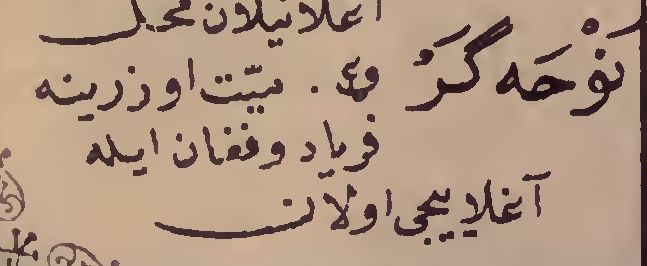 آغلانیلان محل
نَوْحَه گَرْ وی . میّت اوزرینه
فریاد و فغان ایله
آغلاییجی اولان